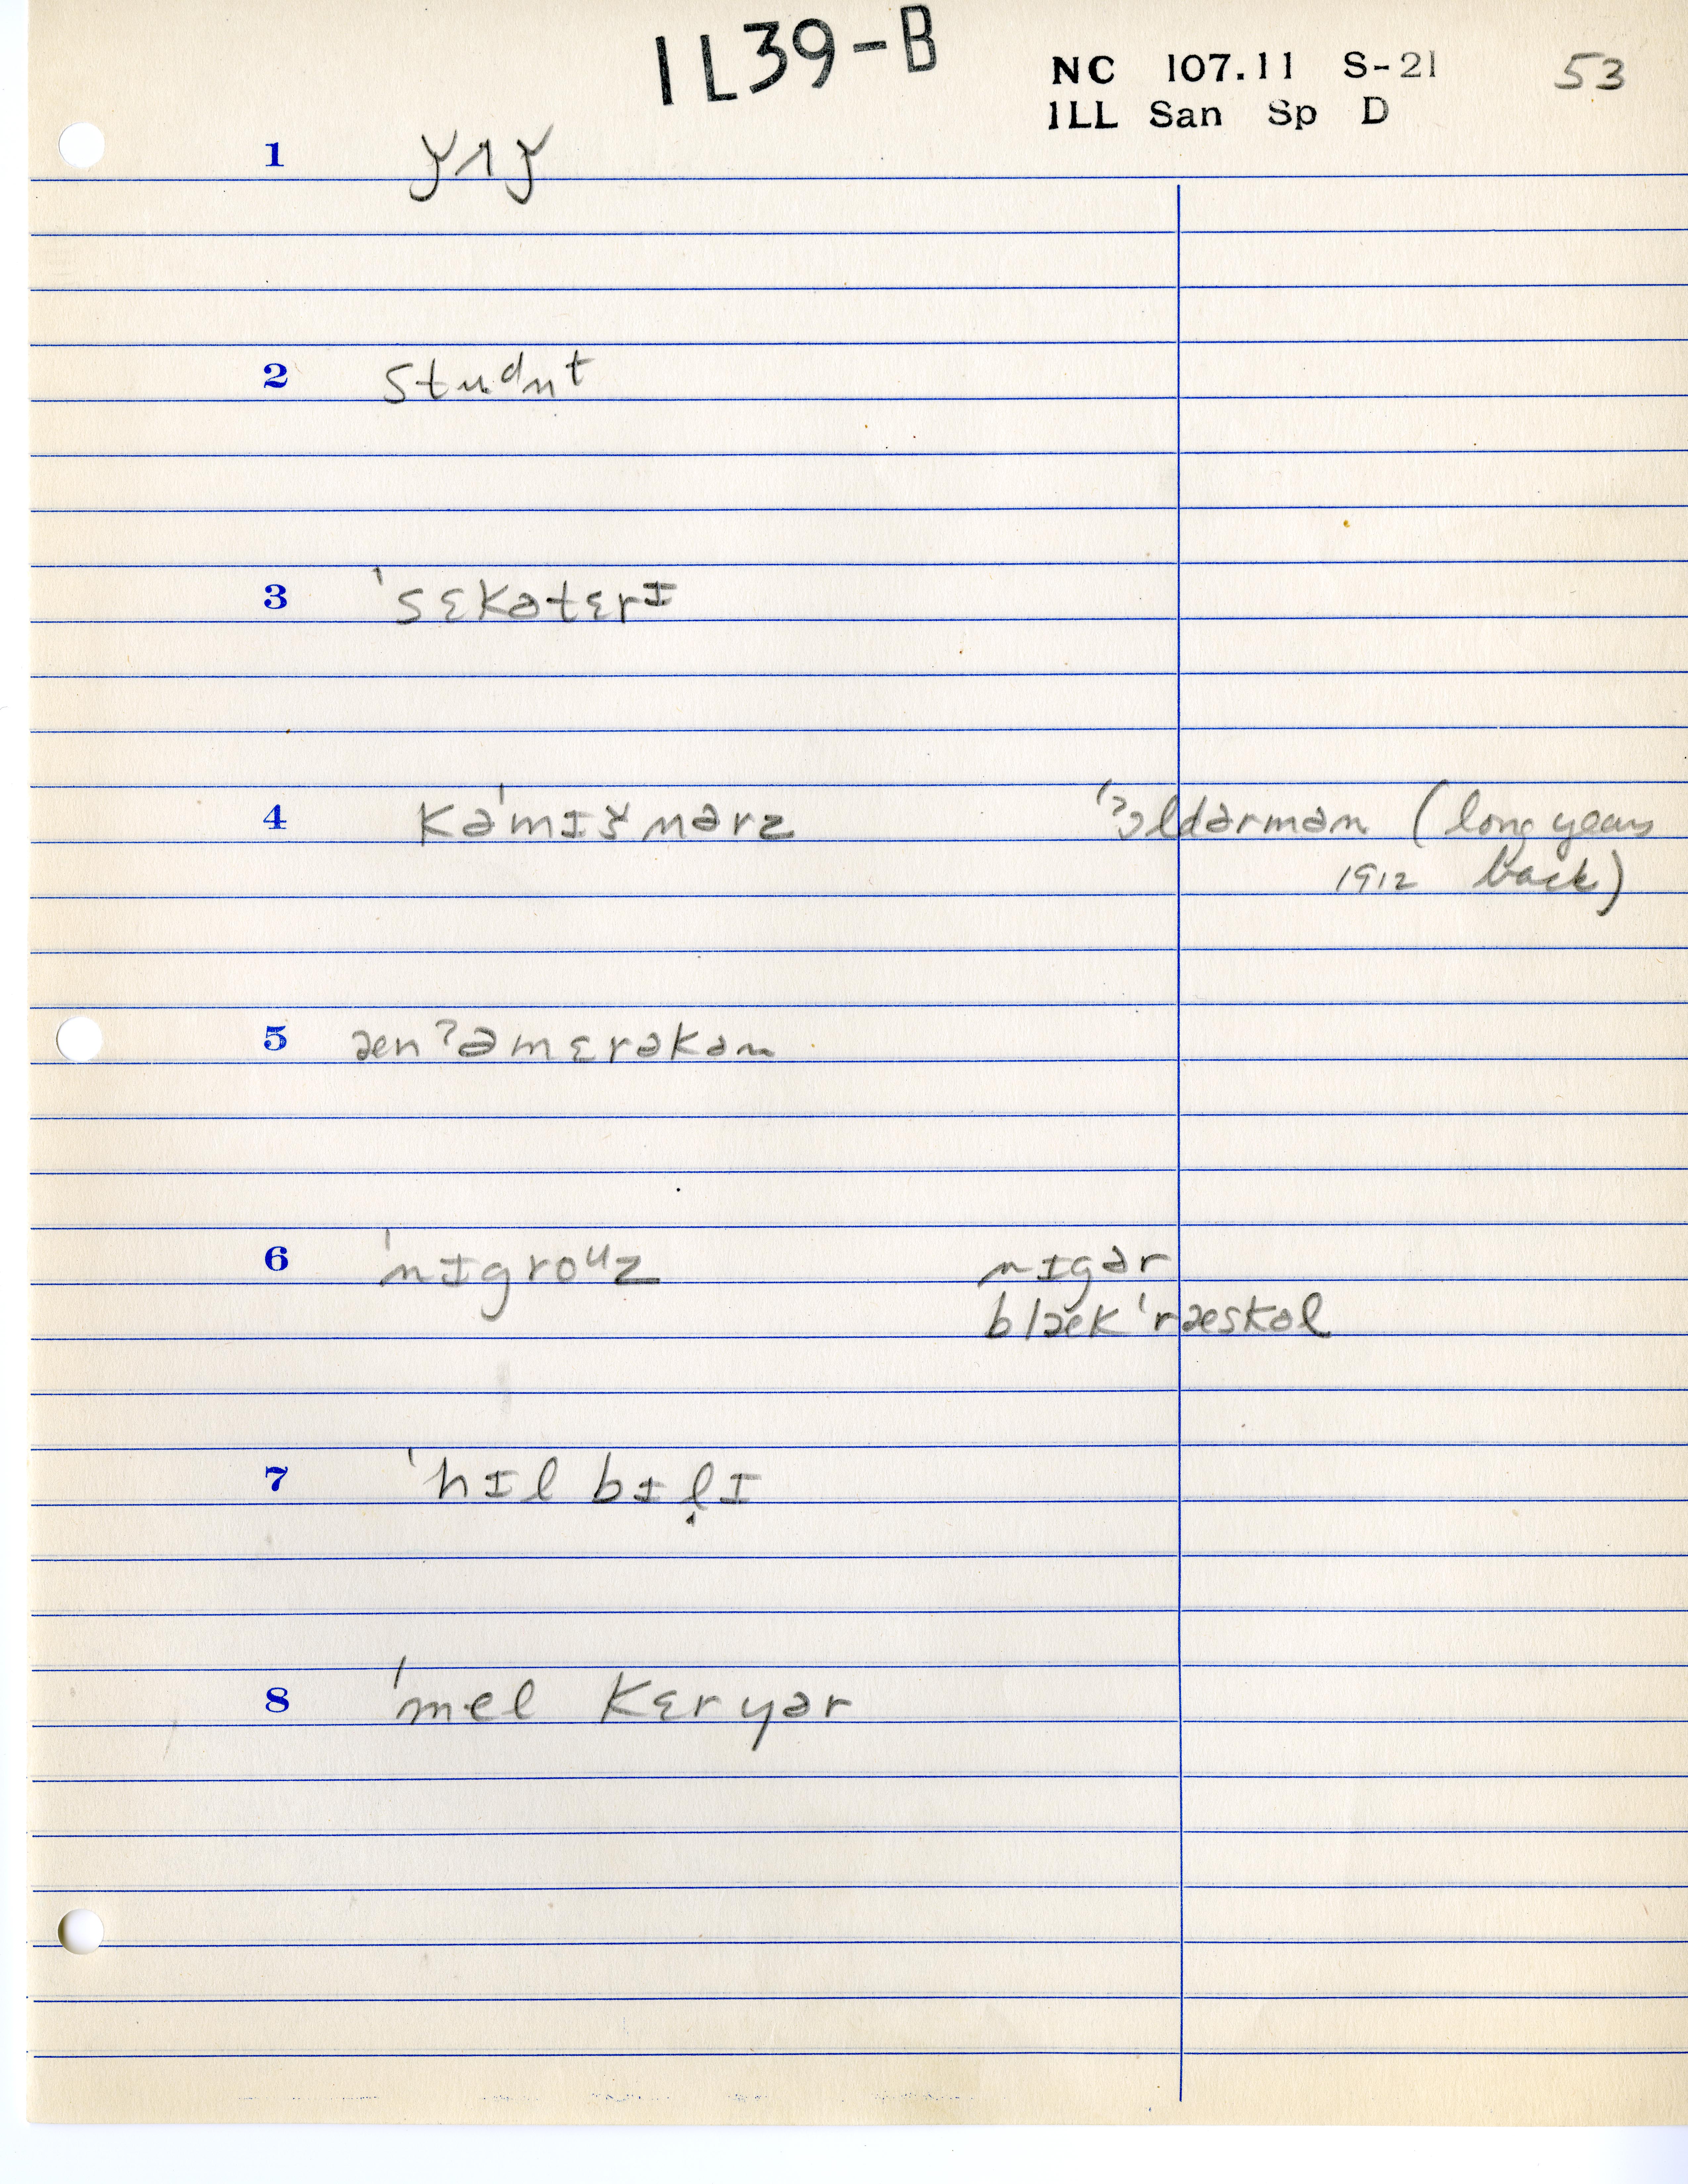 IL39-B
NC 107.11 S-21 53
ILL San Sp D
1 ǰʌǰ
2 studnt
3 ˈsɛkətɛrɪ
4 kəˈmɪšnərz ˈʔɔldərmən (long years
1912 back)
5 æn ʔəmɛrəkən
6 ˈnɪgroᵘz nɪgər
blæk ˈræskəl
7 ˈhɪl bɪḷɪ
8 ˈmel kɛryər